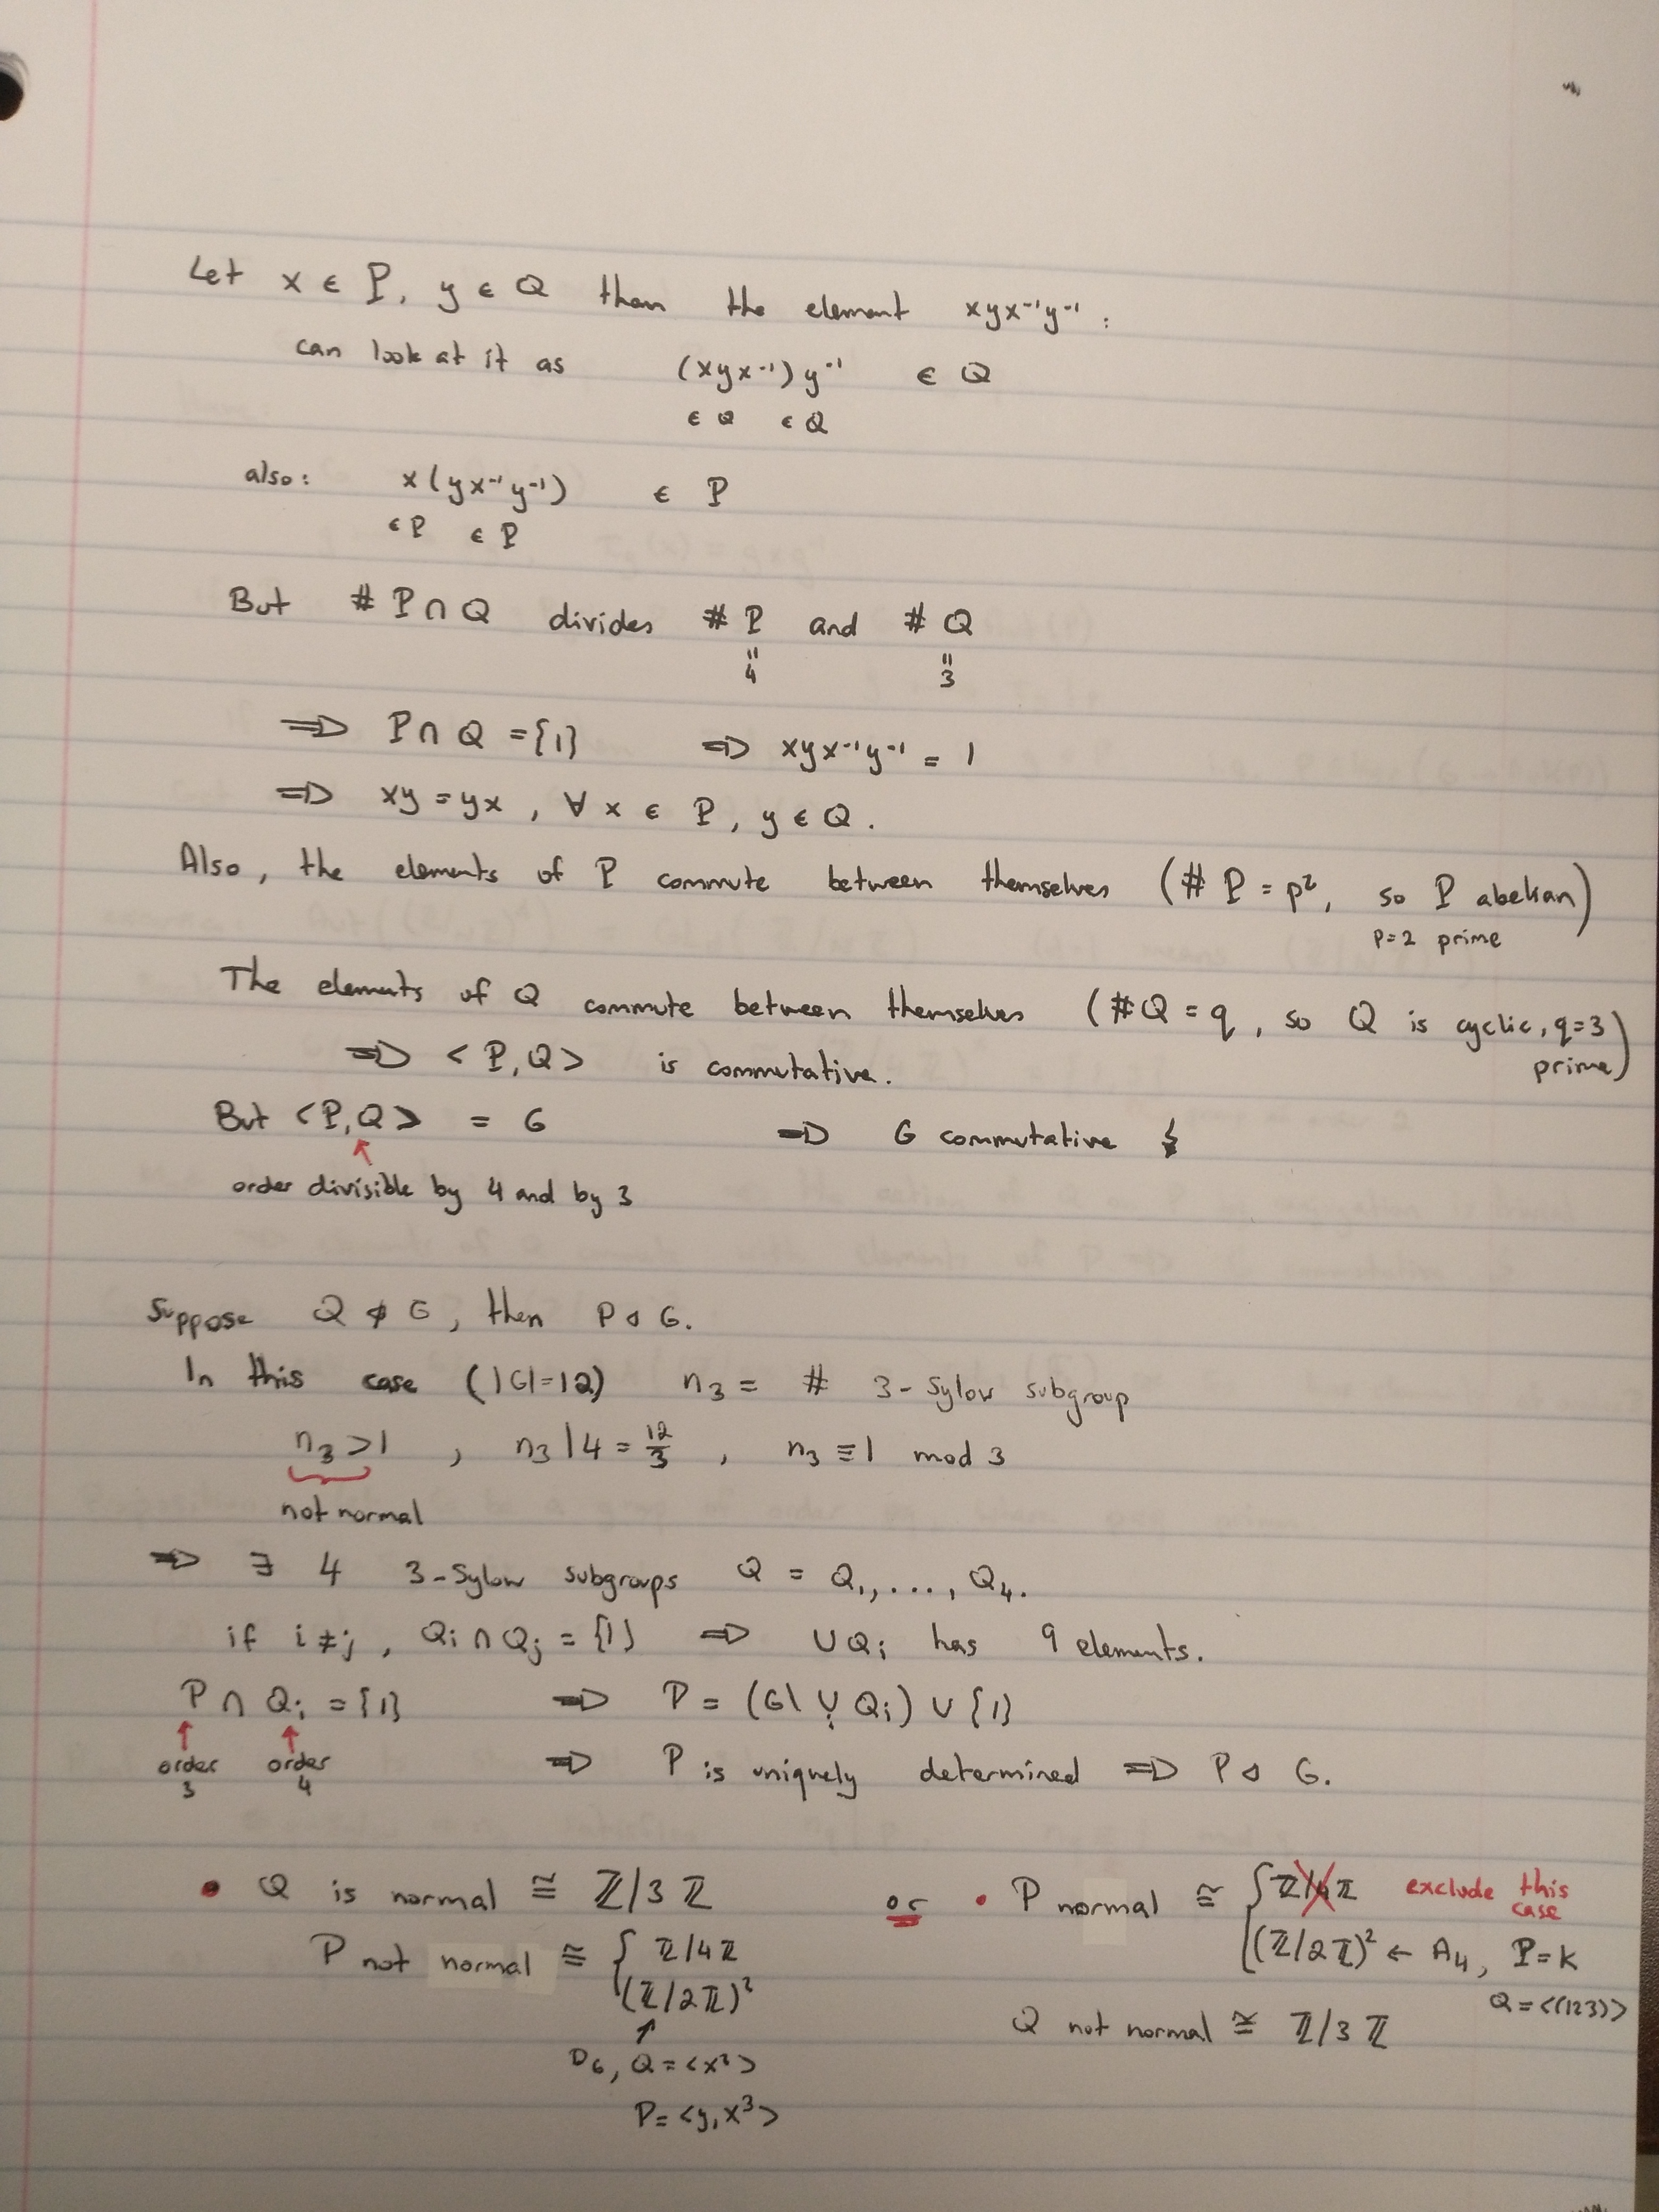 Let x ∈ P, y ∈ Q then the element xyx⁻¹y⁻¹ :
can look at it as (xyx⁻¹) y⁻¹ ∈ Q
∈ Q ∈ Q
also: x(yx⁻¹y⁻¹) ∈ P
∈ P ∈ P
But # P ∩ Q divides # P and # Q
= 4 = 3
⇒ P ∩ Q = {1} ⇒ xyx⁻¹y⁻¹ = 1
⇒ xy = yx , ∀ x ∈ P, y ∈ Q.
Also, the elements of P commute between themselves (# P = p², so P abelian)
p=2 prime
The elements of Q commute between themselves (#Q = q, so Q is cyclic, q=3
prime)
⇒ <P,Q> is commutative.
But <P,Q> = G ⇒ G commutative ↯
↑
order divisible by 4 and by 3
Suppose Q ⋪ G, then P ⊲ G.
In this case (|G|=12) n₃ = # 3-Sylow subgroup
n₃ >1 , n₃ | 4 = 12/3 , n₃ ≡ 1 mod 3
not normal
⇒ ∃ 4 3-Sylow subgroups Q = Q₁, ..., Q₄.
if i ≠ j, Qi ∩ Qj = {1} ⇒ ∪Qi has 9 elements.
P ∩ Qi = {1} ⇒ P = (G \ ∪ᵢ Qi) ∪ {1}
↑ ↑
order 3 order 4 ⇒ P is uniquely determined ⇒ P ⊲ G.
• Q is normal ≅ ℤ/3ℤ or • P normal ≅ { ℤ/4ℤ exclude this case
P not normal ≅ { ℤ/4ℤ (ℤ/2ℤ)² ← A₄, P=K
(ℤ/2ℤ)² Q = <(123)>
↑ Q not normal ≅ ℤ/3ℤ
D₆, Q = <x²>
P = <y, x³>